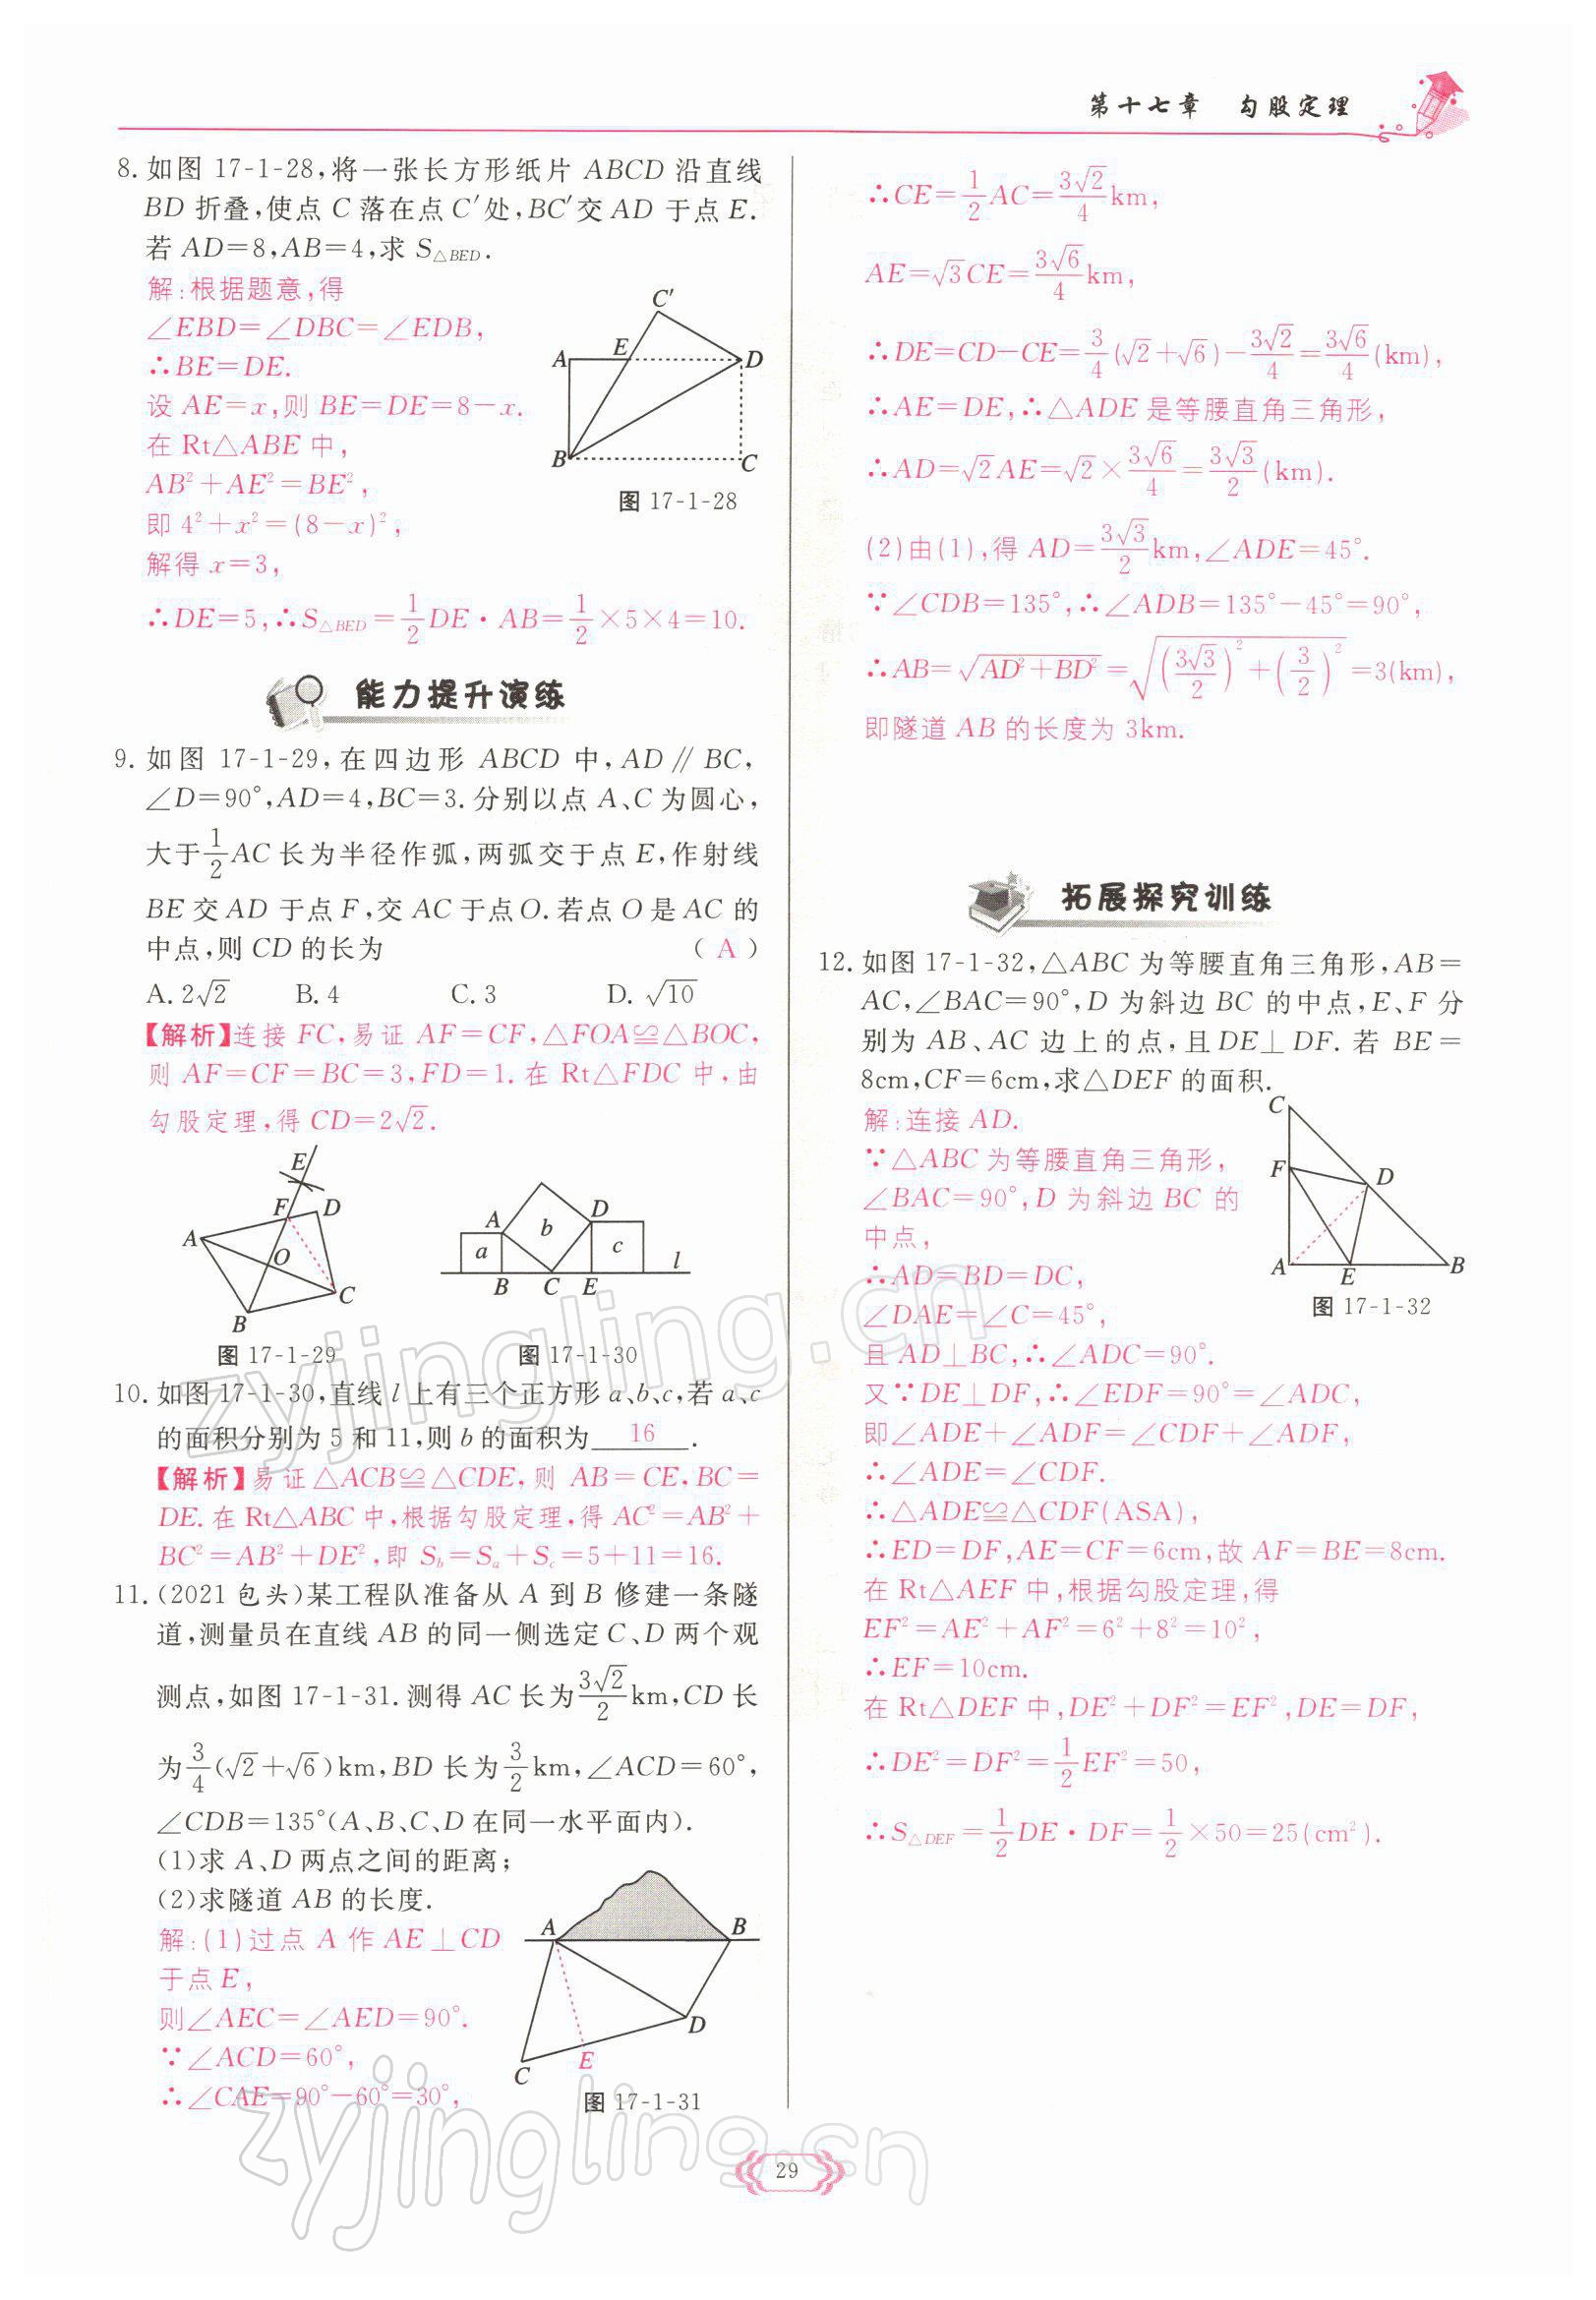 第十七章 勾股定理
8. 如图 17-1-28,将一张长方形纸片 ABCD 沿直线
BD 折叠,使点 C 落在点 C′处,BC′交 AD 于点 E.
若 AD=8,AB=4,求 S△BED.
解:根据题意,得
∠EBD=∠DBC=∠EDB,
∴BE=DE.
设 AE=x,则 BE=DE=8-x.
在 Rt△ABE 中,
AB²+AE²=BE²,
即 4²+x²=(8-x)²,
解得 x=3,
∴DE=5,∴S△BED=1/2DE·AB=1/2×5×4=10.
C′
A E D
B C
图 17-1-28
能力提升演练
9. 如图 17-1-29,在四边形 ABCD 中,AD∥BC,
∠D=90°,AD=4,BC=3.分别以点 A、C 为圆心,
大于1/2AC 长为半径作弧,两弧交于点 E,作射线
BE 交 AD 于点 F,交 AC 于点 O.若点 O 是 AC 的
中点,则 CD 的长为 ( A )
A. 2√2 B. 4 C. 3 D. √10
【解析】连接 FC,易证 AF=CF,△FOA≌△BOC,
则 AF=CF=BC=3,FD=1.在 Rt△FDC 中,由
勾股定理,得 CD=2√2.
E
F D
A O
C
B
图 17-1-29
A D
a b c l
B C E
图 17-1-30
10. 如图 17-1-30,直线 l 上有三个正方形 a、b、c,若 a、c
的面积分别为 5 和 11,则 b 的面积为 16 .
【解析】易证△ACB≌△CDE,则 AB=CE,BC=
DE.在 Rt△ABC 中,根据勾股定理,得 AC²=AB²+
BC²=AB²+DE²,即 Sb=Sa+Sc=5+11=16.
11. (2021 包头)某工程队准备从 A 到 B 修建一条隧
道,测量员在直线 AB 的同一侧选定 C、D 两个观
测点,如图 17-1-31.测得 AC 长为3√2/2km,CD 长
为3/4(√2+√6)km,BD 长为3/2km,∠ACD=60°,
∠CDB=135°(A、B、C、D 在同一水平面内).
(1)求 A、D 两点之间的距离;
(2)求隧道 AB 的长度.
解:(1)过点 A 作 AE⊥CD
于点 E,
则∠AEC=∠AED=90°.
∵∠ACD=60°,
∴∠CAE=90°-60°=30°,
A B
D
C E
图 17-1-31
∴CE=1/2AC=3√2/4km,
AE=√3CE=3√6/4km,
∴DE=CD-CE=3/4(√2+√6)-3√2/4=3√6/4(km),
∴AE=DE,∴△ADE 是等腰直角三角形,
∴AD=√2AE=√2×3√6/4=3√3/2(km).
(2)由(1),得 AD=3√3/2km,∠ADE=45°.
∵∠CDB=135°,∴∠ADB=135°-45°=90°,
∴AB=√(AD²+BD²)=√((3√3/2)²+(3/2)²)=3(km),
即隧道 AB 的长度为 3km.
拓展探究训练
12. 如图 17-1-32,△ABC 为等腰直角三角形,AB=
AC,∠BAC=90°,D 为斜边 BC 的中点,E、F 分
别为 AB、AC 边上的点,且 DE⊥DF.若 BE=
8cm,CF=6cm,求△DEF 的面积.
解:连接 AD.
∵△ABC 为等腰直角三角形,
∠BAC=90°,D 为斜边 BC 的
中点,
∴AD=BD=DC,
∠DAE=∠C=45°,
且 AD⊥BC,∴∠ADC=90°.
又∵DE⊥DF,∴∠EDF=90°=∠ADC,
即∠ADE+∠ADF=∠CDF+∠ADF,
∴∠ADE=∠CDF.
∴△ADE≌△CDF(ASA),
∴ED=DF,AE=CF=6cm,故 AF=BE=8cm.
在 Rt△AEF 中,根据勾股定理,得
EF²=AE²+AF²=6²+8²=10²,
∴EF=10cm.
在 Rt△DEF 中,DE²+DF²=EF²,DE=DF,
∴DE²=DF²=1/2EF²=50,
∴S△DEF=1/2DE·DF=1/2×50=25(cm²).
C
F D
A E B
图 17-1-32
zyjingling.cn
zyjingling.cn
29